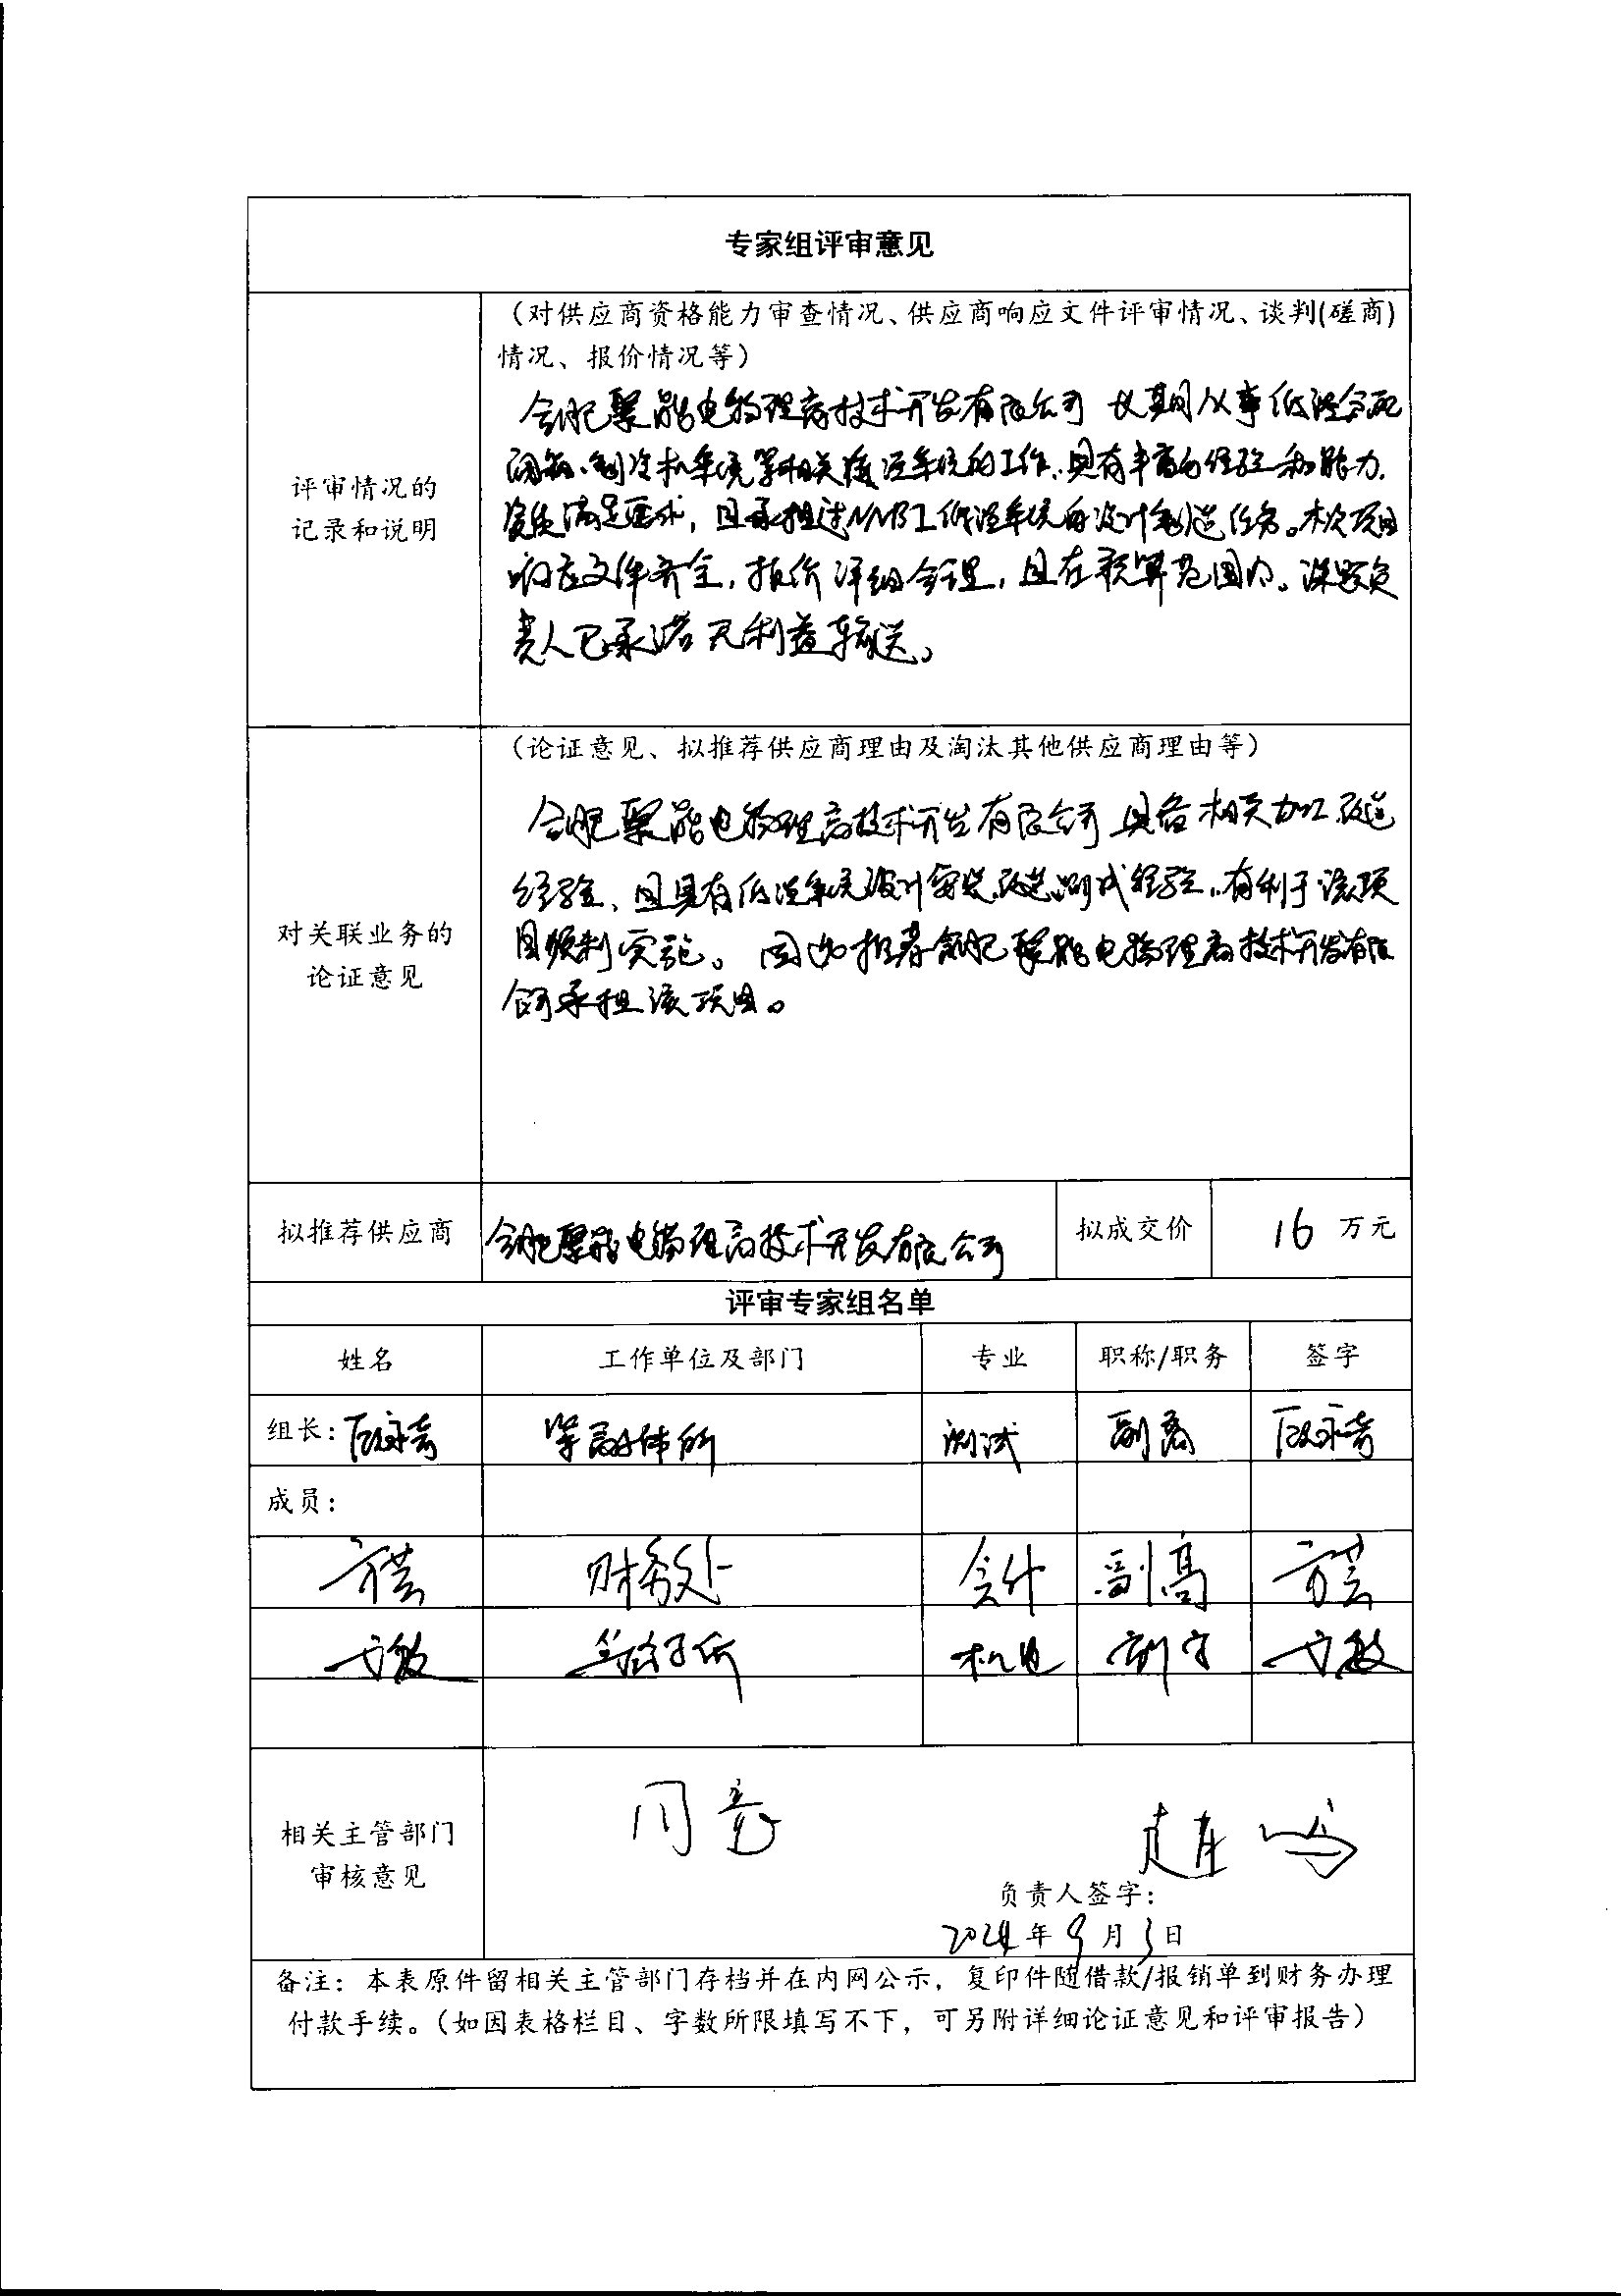 专家组评审意见
评审情况的
记录和说明
（对供应商资格能力审查情况、供应商响应文件评审情况、谈判(磋商)
情况、报价情况等）
合肥聚能电物理高技术开发有限公司 长期从事低温分配
阀箱、制冷机系统等相关低温系统的工作，具有丰富的经验和能力，
资质满足要求，且承担过NNBI低温系统的设计制造任务。本次项目
响应文件齐全，报价详细合理，且在预算范围内。课题负
责人已承诺无利益输送。
对关联业务的
论证意见
（论证意见、拟推荐供应商理由及淘汰其他供应商理由等）
合肥聚能电物理高技术开发有限公司 具备相关加工改造
经验、且具有低温系统设计安装改造测试经验，有利于该项
目顺利实施。因此推荐合肥聚能电物理高技术开发有限
公司承担该项目。
拟推荐供应商 合肥聚能电物理高技术开发有限公司 拟成交价 16 万元
评审专家组名单
姓名 工作单位及部门 专业 职称/职务 签字
组长： 等离子体所 测试 副高
成员：
财务处 会计 副高
方敏 等离子所 机电 副高 方敏
相关主管部门
审核意见
同意
负责人签字：
2024年9月3日
备注：本表原件留相关主管部门存档并在内网公示，复印件随借款/报销单到财务办理
付款手续。（如因表格栏目、字数所限填写不下，可另附详细论证意见和评审报告）